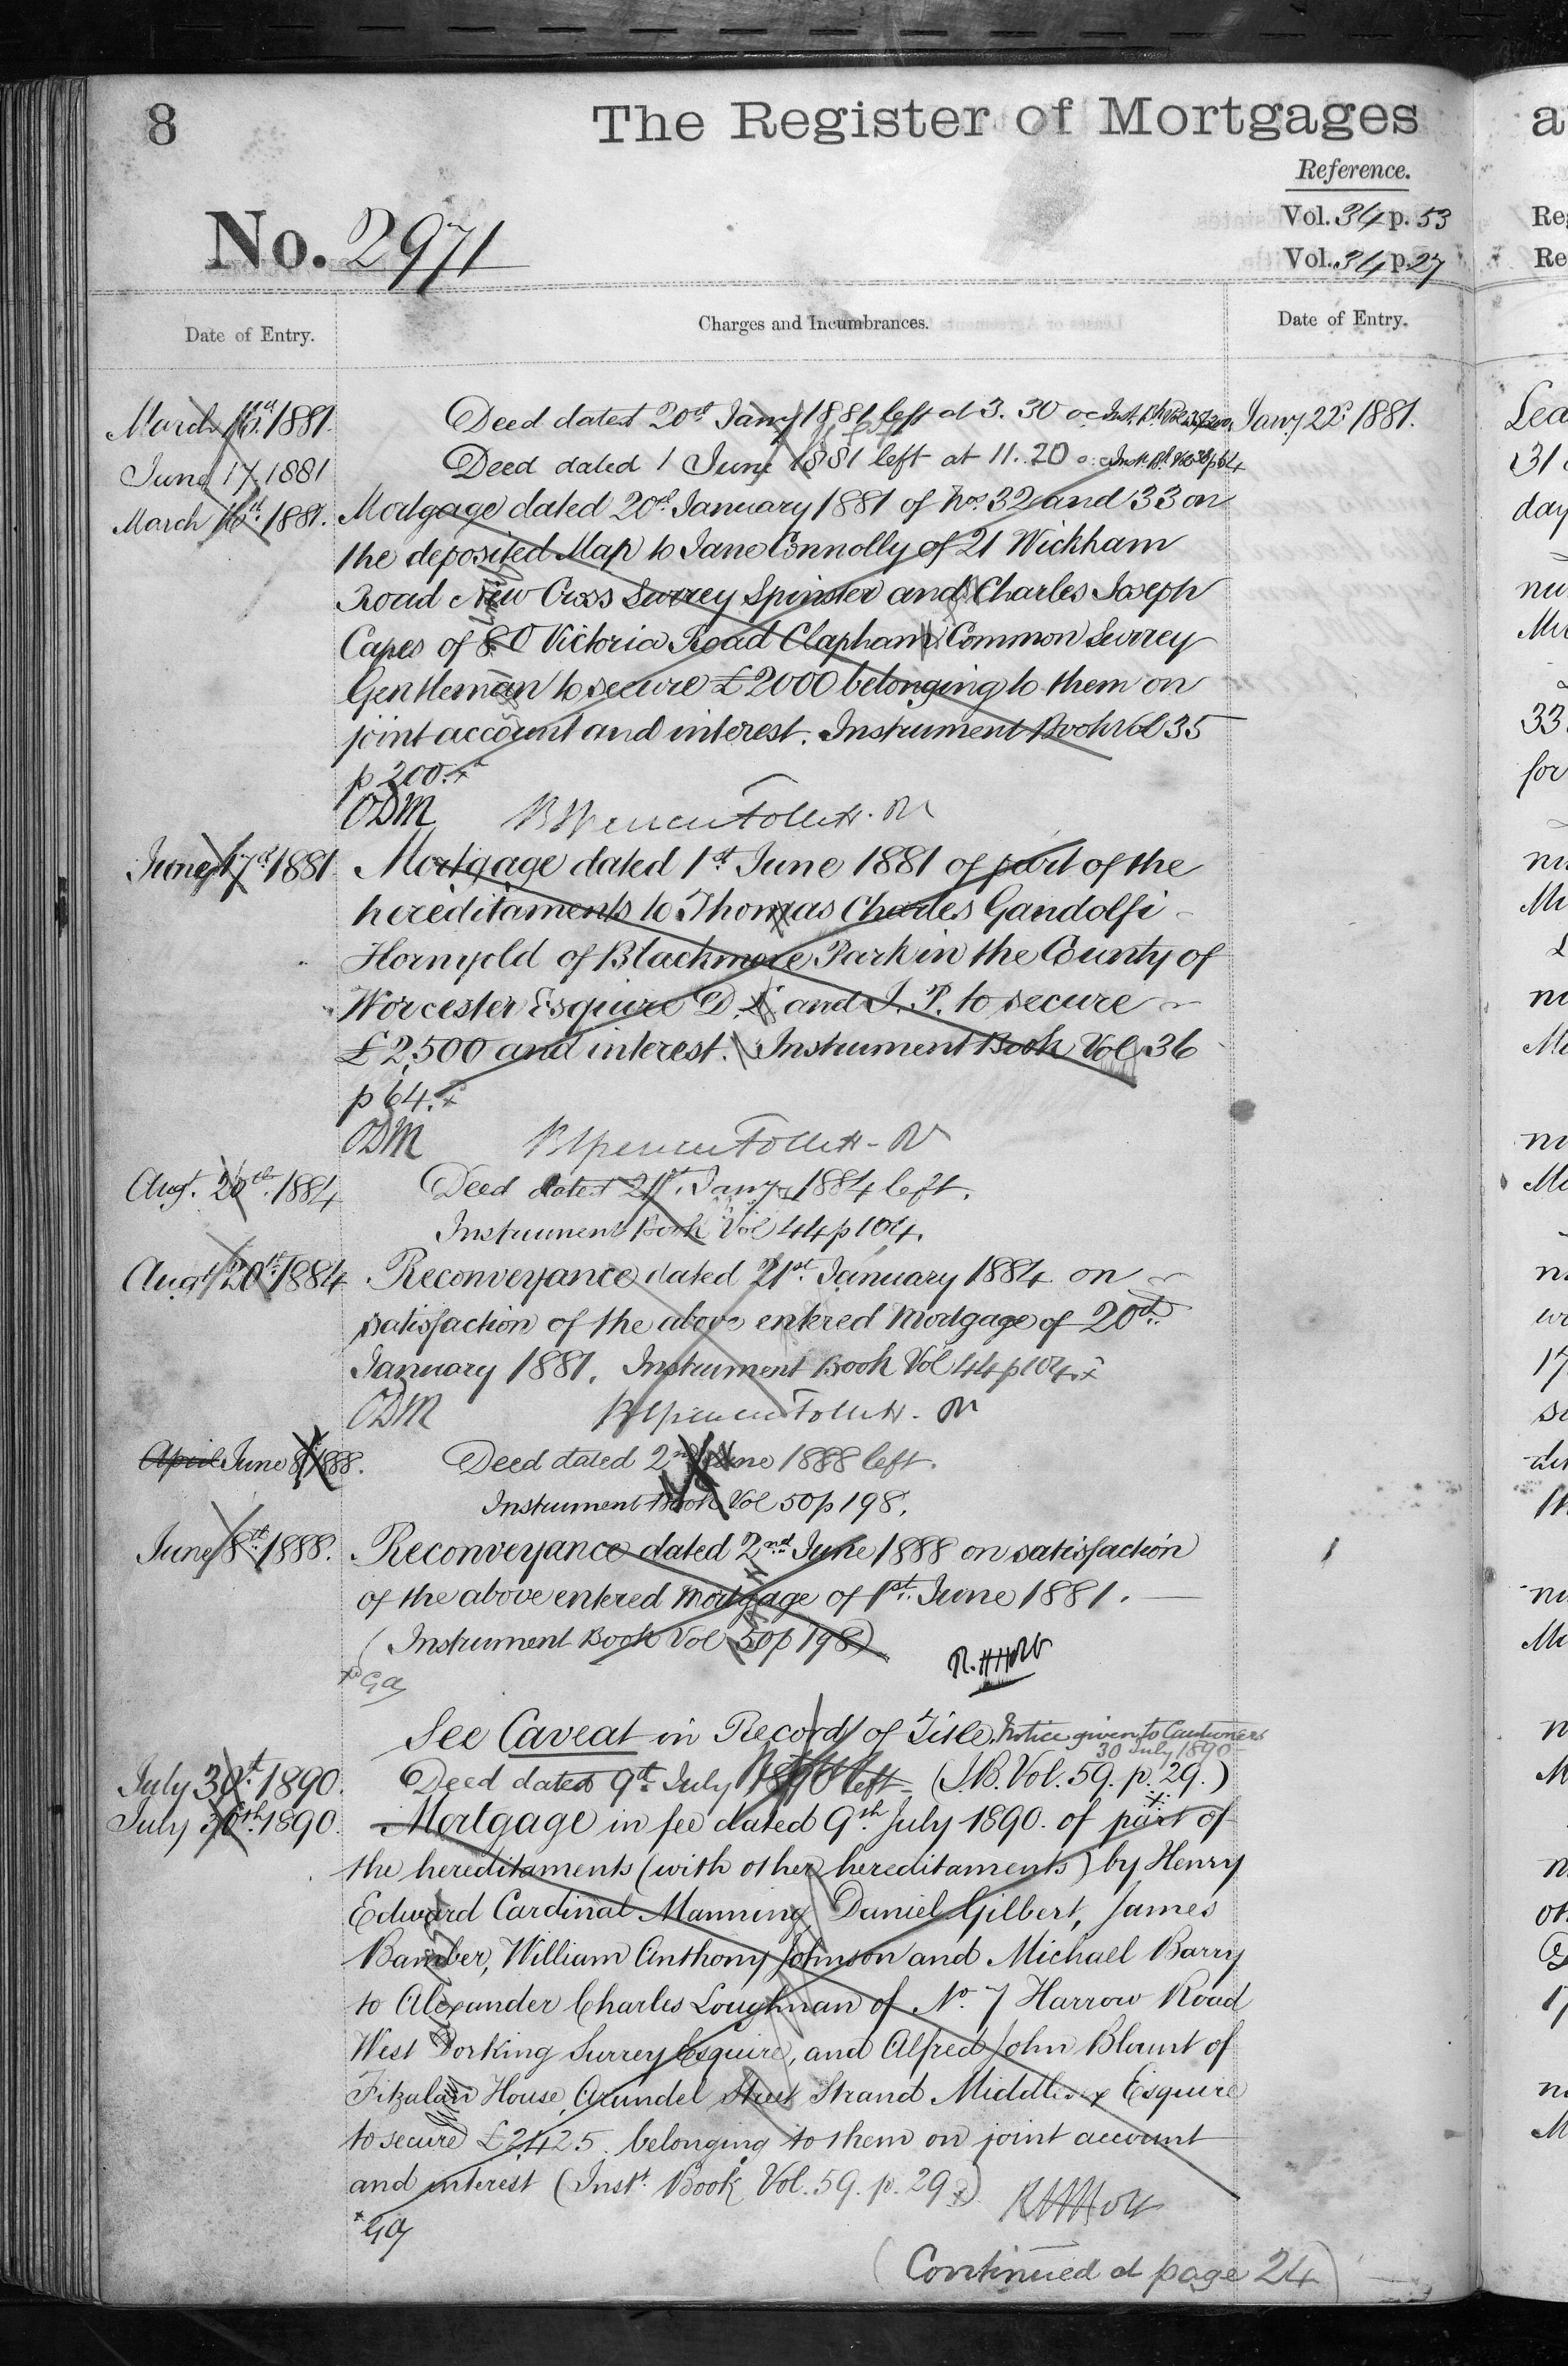 8
The Register of Mortgages
Reference.
Vol. 34 p. 53
Vol. 34 p. 27
No. 2971
Date of Entry.
Charges and Incumbrances.
Date of Entry.
March 16th 1881. Deed dated 20th Jany 1881 left at 3. 30 Jany 22d 1881.
June 17 1881 Deed dated 1 June 1881 left at 11. 20
March 16th 1881. Mortgage dated 20th January 1881 of Nos. 32 and 33 on
the deposited Map to Jane Connolly of 21 Wickham
Road New Cross Surrey Spinster and Charles Joseph
Capes of 80 Victoria Road Clapham Common Surrey
Gentleman to secure £2000 belonging to them on
joint account and interest. Instrument Book Vol 35
p 200.
ODM
June 17th 1881 Mortgage dated 1st June 1881 of part of the
hereditaments to Thomas Charles Gandolfi
Hornyold of Blackmore Park in the County of
Worcester Esquire D.L. and J.P. to secure
£2,500 and interest. Instrument Book Vol 36
p 64.
ODM
Augt. 20th 1884 Deed dated 21st. Jany 1884 left.
Instrument Book Vol 44 p 104.
Augt 20th 1884 Reconveyance dated 21st. January 1884 on
satisfaction of the above entered Mortgage of 20th
January 1881. Instrument Book Vol 44 p 104.
ODM
April June 8 1888. Deed dated 2nd June 1888 left.
Instrument Book Vol 50 p 198.
June 8th 1888. Reconveyance dated 2nd June 1888 on satisfaction
of the above entered Mortgage of 1st. June 1881.
(Instrument Book Vol 50 p 198)
See Caveat in Record of Title. Notice given to Cautioners
30 July 1890
July 30th 1890. Deed dated 9th July 1890 left (I.B. Vol. 59. p. 29.)
July 30th 1890. Mortgage in fee dated 9th July 1890. of part of
the hereditaments (with other hereditaments) by Henry
Edward Cardinal Manning, Daniel Gilbert, James
Bamber, William Anthony Johnson and Michael Barry
to Alexander Charles Loughnan of No. 7 Harrow Road
West Dorking Surrey Esquire, and Alfred John Blount of
Fitzalan House, Arundel Street Strand Middlesex Esquire
to secure £2,425. belonging to them on joint account
and interest (Inst. Book Vol. 59. p. 29)
(Continued at page 24)